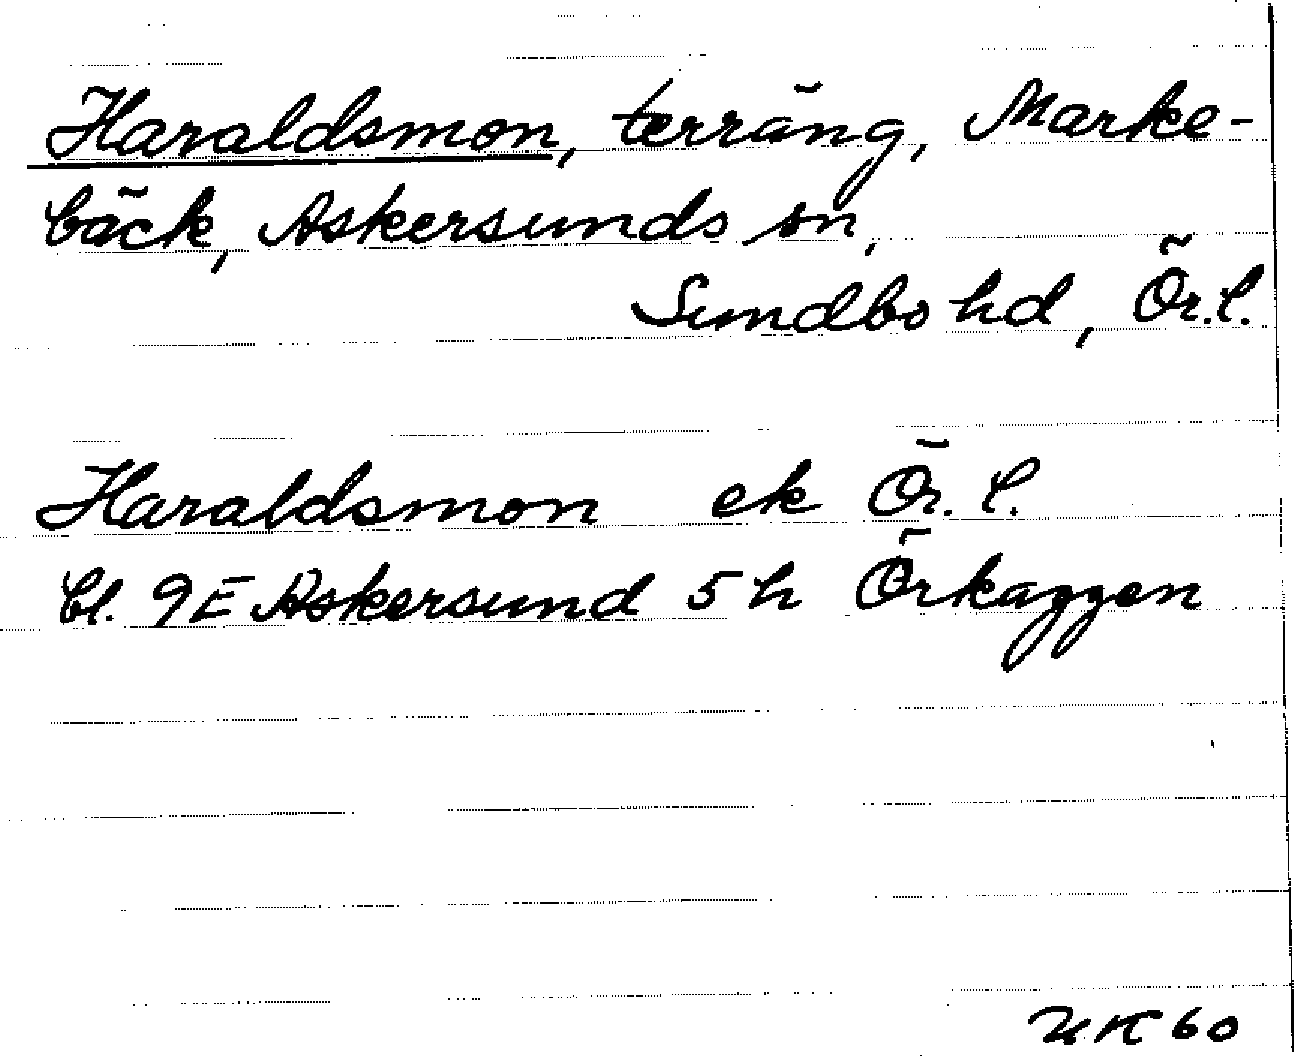 Haraldsmon, terräng, Marke-
bäck, Askersunds sn,
Sundbo hd, Ör.l.
Haraldsmon ek Ör. l.
bl. 9E Askersund 5 h Örkaggen
60